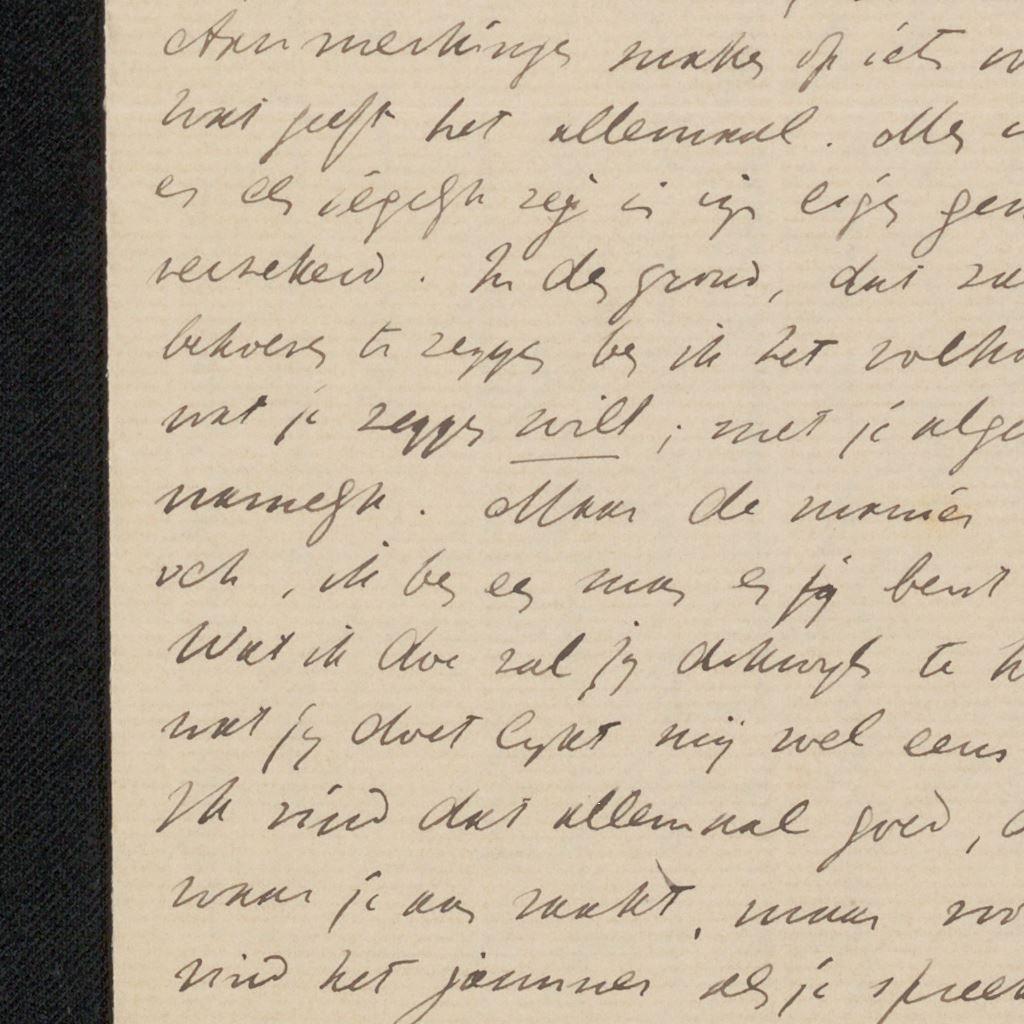 Aanmerkingen maken op iets
wat geeft het allemaal. Men
er een iegelijk zij in zijn eigen gem
verzekerd. In den grond, dat zal
behoeven te zeggen ben ik het volko
wat je zeggen wilt; met je alge
namelijk. Maar de manier
och, ik ben een man en jij bent
Wat ik doe zal jij dikwijls te h
wat jij doet lijkt mij wel eens
Ik vind dat allemaal goed,
waar je aan raakt, maar
vind het jammer als je spreek